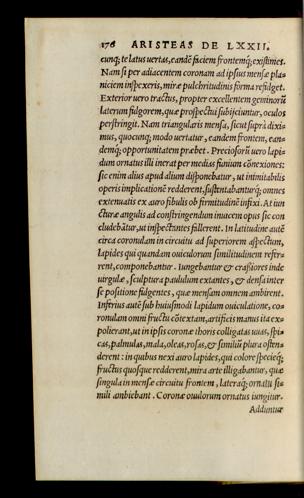 176 ARISTEAS DE LXXII.
cunq; te latus uertas, eandē faciem frontemq; existimes.
Nam si per adiacentem coronam ad ipsius mensæ pla-
niciem inspexeris, miræ pulchritudinis forma refulget.
Exterior uero tractus, propter excellentem geminorū
laterum fulgorem, quæ prospectui subijciuntur, oculos
perstringit. Nam triangularis mensa, sicut suprà dixi-
mus, quocunq; modo uertatur, eandem frontem, ean-
demq; opportunitatem præbet. Preciosorū uero lapi-
dum ornatus illi inerat per medias funium cōnexiones:
sic enim alius apud alium disponebatur, ut inimitabilis
operis implicationē redderent, sustentabanturq; omnes
extenuatis ex auro fibulis ob firmitudinē infixi. At iun
cturæ angulis ad constringendum inuicem opus sic con
cludebātur, ut inspectantes fallerent. In latitudine autē
circa coronulam in circuitu ad superiorem aspectum,
lapides qui quandam ouiculorum similitudinem refer-
rent, componebantur. Iungebantur & crassiores inde
uirgulæ, sculptura paululum extantes, & densa inter
se positione fulgentes, quæ mensam omnem ambirent.
Inferius autē sub huiusmodi lapidum ouiculatione, co-
ronulam omni fructu cōtextam, artificis manus ita ex-
polierat, ut in ipsis coronæ thoris colligatas uuas, spi-
cas, palmulas, mala, oleas, rosas, & similiū plura osten-
derent: in quibus nexi auro lapides, qui colore specieq;
fructus quosque redderent, mira arte illigabantur, quæ
singula in mensæ circuitu frontem, lateraq; ornatu si-
mili ambiebant. Coronæ ouulorum ornatus iungitur.
Adduntur